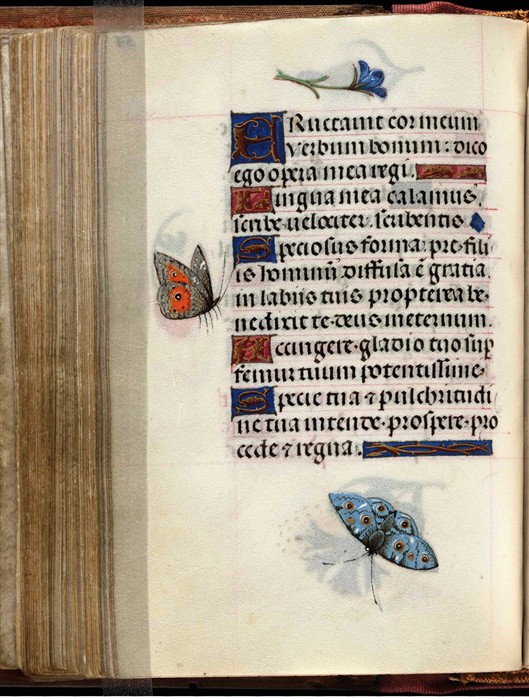 ERuctauit cor meum
verbum bonum: dico
ego opera mea regi.
Lingua mea calamus,
scribe uelociter scribentis
Speciosus forma pre fili
is hominū diffusa ē gratia
in labiis tuis propterea be-
nedixit te deus ineternum.
Accingere gladio tuo sup
femur tuum potentissime
Specie tua ⁊ pulchritudi
ne tua intende prospere pro
cede ⁊ regna.